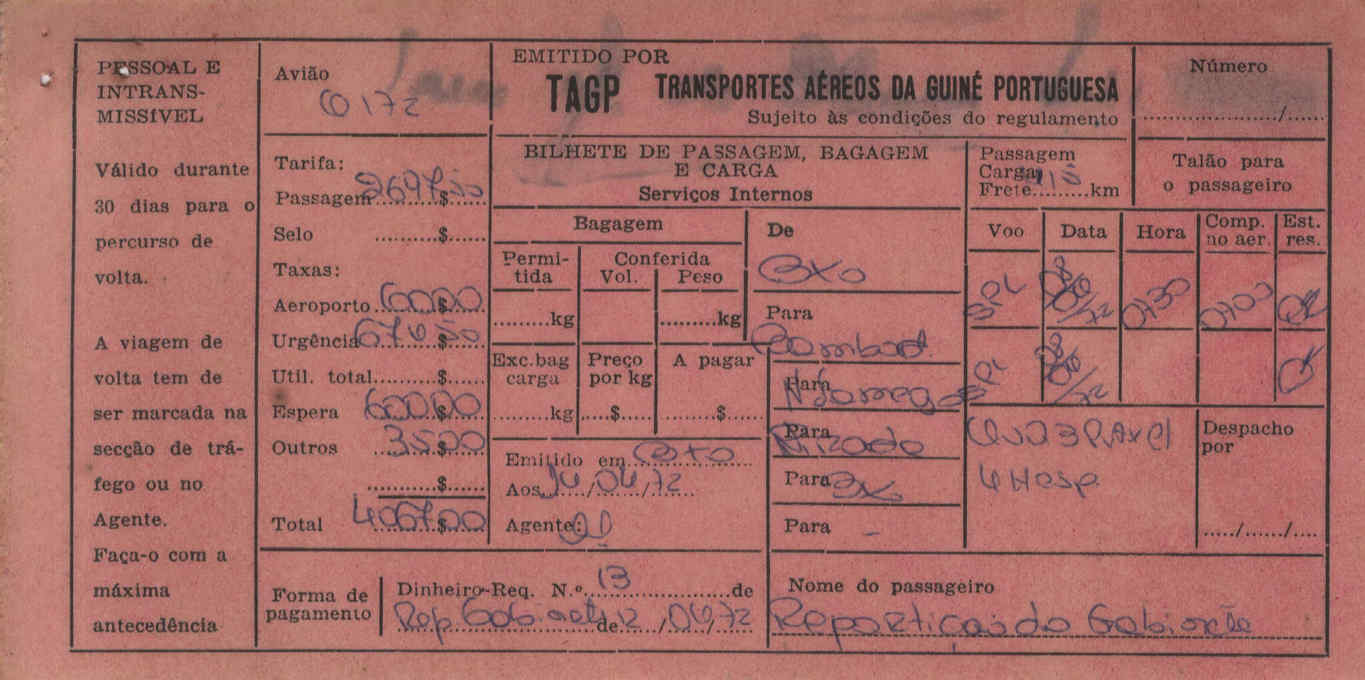 PESSOAL E
INTRANS-
MISSÍVEL
Válido durante
30 dias para o
percurso de
volta.
A viagem de
volta tem de
ser marcada na
secção de trá-
fego ou no
Agente.
Faça-o com a
máxima
antecedência
Avião
6172
Tarifa:
Passagem 2697$50
Selo ..........$......
Taxas:
Aeroporto 60$00
Urgência 674$50
Util. total..........$......
Espera 600$00
Outros 35$00
..........$......
Total 4067$00
EMITIDO POR
TAGP TRANSPORTES AÉREOS DA GUINÉ PORTUGUESA
Sujeito às condições do regulamento
Número
......................./......
BILHETE DE PASSAGEM, BAGAGEM
E CARGA
Serviços Internos
Passagem
Carga
Frete 415 km
Talão para
o passageiro
Bagagem
Permi-
tida
Conferida
Vol. Peso
.........kg .........kg
Exc.bag
carga
Preço
por kg
A pagar
........kg ....$.... ........$......
Emitido em Bxo
Aos 14/04/72
Agente:
De
Bxo
Para
Para
Para
Para Bx
Para -
Voo Data Hora Comp.
no aer. Est.
res.
SPL 0730 0700 OK
SPL OK
4 Hosp.
Despacho
por
...../......./....
Forma de
pagamento
Dinheiro-Req. N.º 13 de
Rep. Gabinete de 12/04/72
Nome do passageiro
Repartição do Gabinete